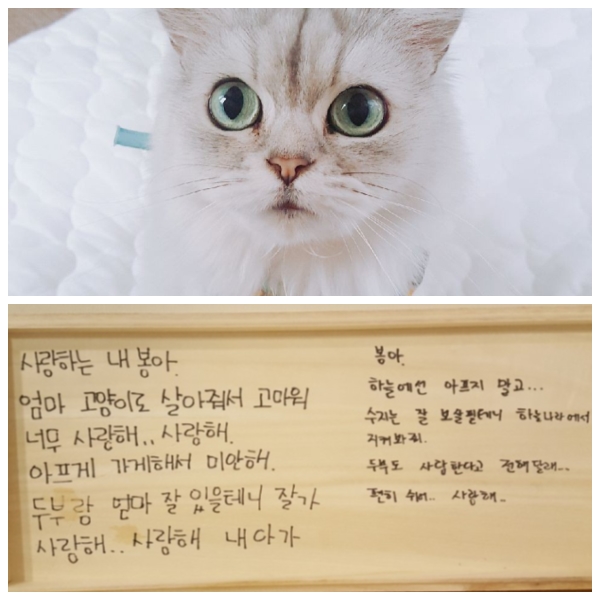 사랑하는 내 봉아.
엄마 고양이로 살아줘서 고마워
너무 사랑해.. 사랑해.
아프게 가게해서 미안해.
두부랑 엄마 잘 있을테니 잘가
사랑해.. 사랑해 내
봉아.
하늘에선 아프지 말고...
수지는 잘 보살필테니 하늘나라에서
지켜봐줘.
두부도 사랑한다고 전해달래...
편히 쉬어.. 사랑해..